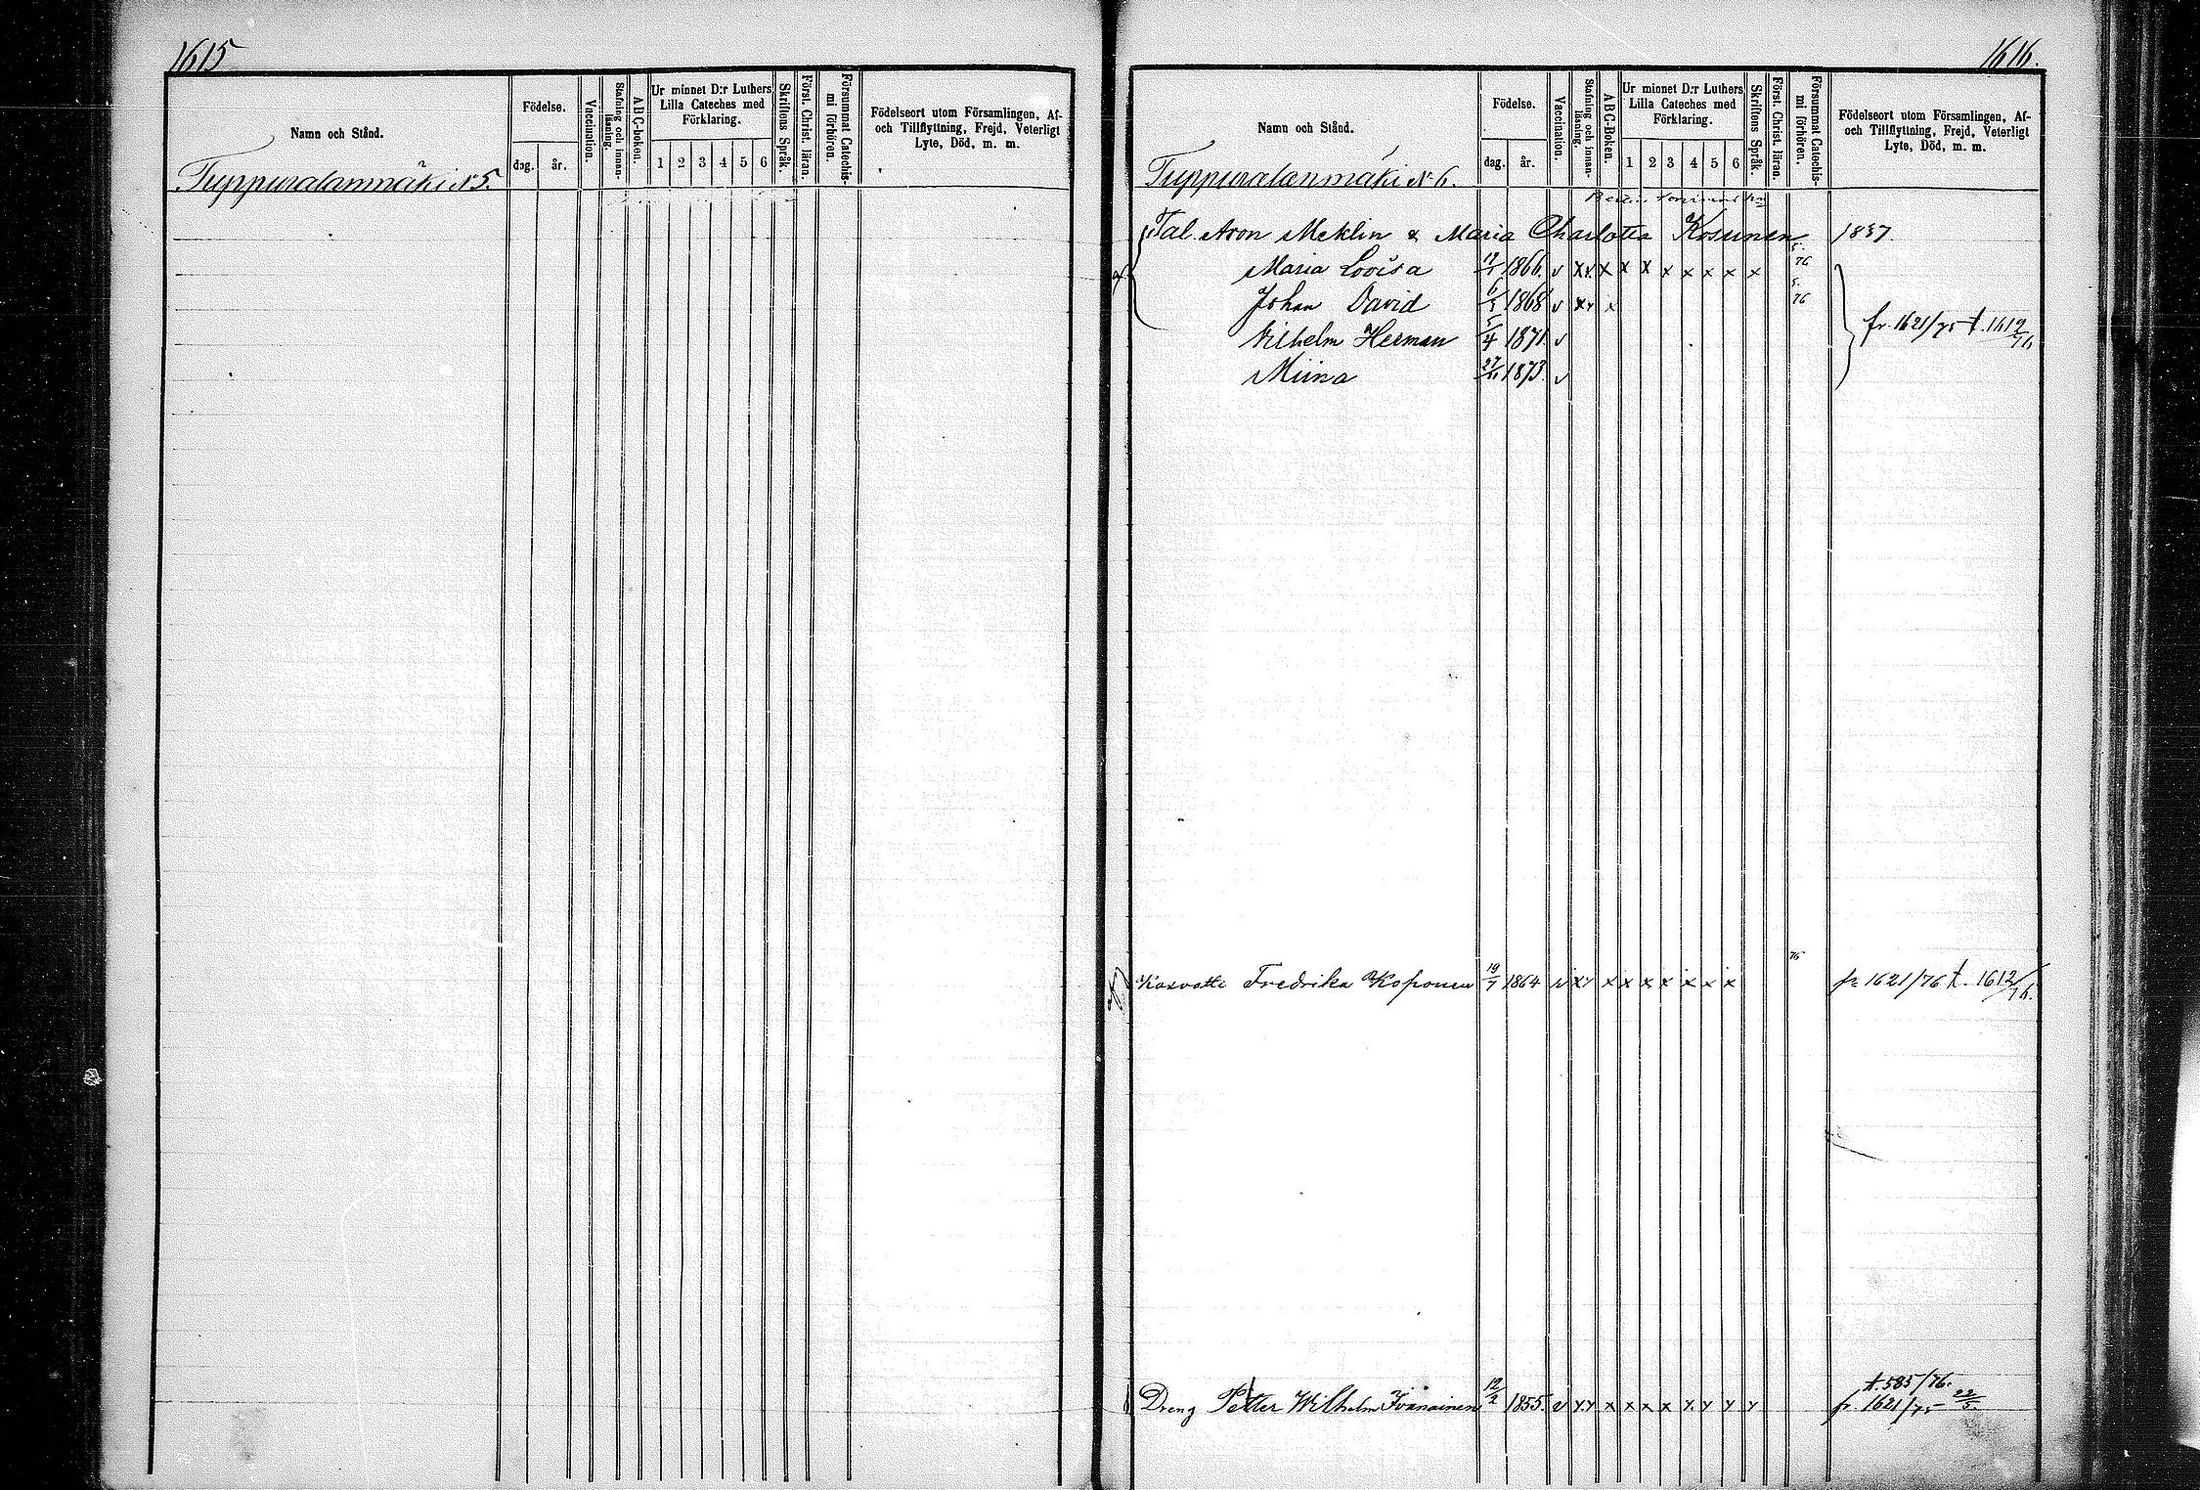 1615
Namn och Stånd.
Födelse.
dag.
år.
Vaccination.
Stafning och innan-
läsning.
A B C-boken.
Ur minnet D:r Luthers
Lilla Cateches med
Förklaring.
1 2 3 4 5 6
Skriftens Språk.
Först. Christ. läran.
Försummat Catechis-
mi förhören.
Födelseort utom Församlingen, Af-
och Tillflyttning, Frejd, Veterligt
Lyte, Död, m. m.
Tuppuralanmäki N 5.
1616.
Namn och Stånd.
Födelse.
dag.
år.
Vaccination.
Stafning och innan-
läsning.
A B C-Boken.
Ur minnet D:r Luthers
Lilla Cateches med
Förklaring.
1 2 3 4 5 6
Skriftens Språk.
Först. Christ. läran.
Försummat Catechis-
mi förhören.
Födelseort utom Församlingen, Af-
och Tillflyttning, Frejd, Veterligt
Lyte, Död, m. m.
Tuppuralanmäki N 6.
Tal. Aron Meklin & Maria Charlotta Kosunen 1837.
Maria Lovisa 1866. v x x x x x x x x x x 76
Johan David 1868 v x x x 76
Vilhelm Herman 5/4 1871. v
Miina 1873. v
fr. 1621/75 t. 1612/76
Kasvatti Fredrika Koponen 19/7 1864 v x x x x x x x x x 76 fr 1621/76 t. 1612/76.
Dreng Petter Wilhelm 12/2 1855. v x x x x x x x x x x t. 585/76.
fr. 1621/75 22/5.